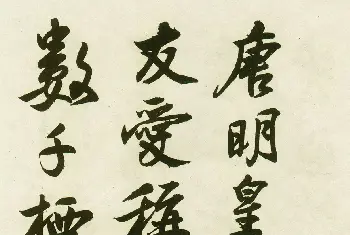 唐明皇
友愛稱
數千栖